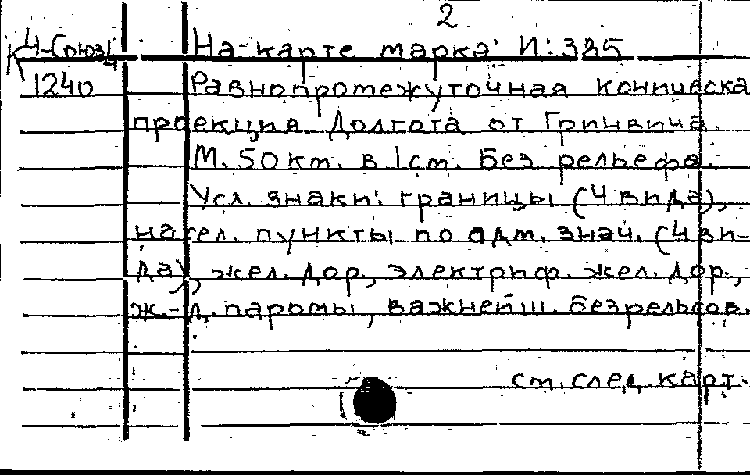 2
К 4-Союз/4 На карте марка: И:385
1240 Равнопромежуточная коническа
проекция. Долгота от Гринвича.
М. 50 км. в 1 см. Без рельефа.
Усл. знаки: границы (4 вида),
насел. пункты по адм. знач. (4 ви-
да), жел. дор., электриф. жел. дор.,
ж.-д. паромы, важнейш. безрельсов.
см. след. карт.